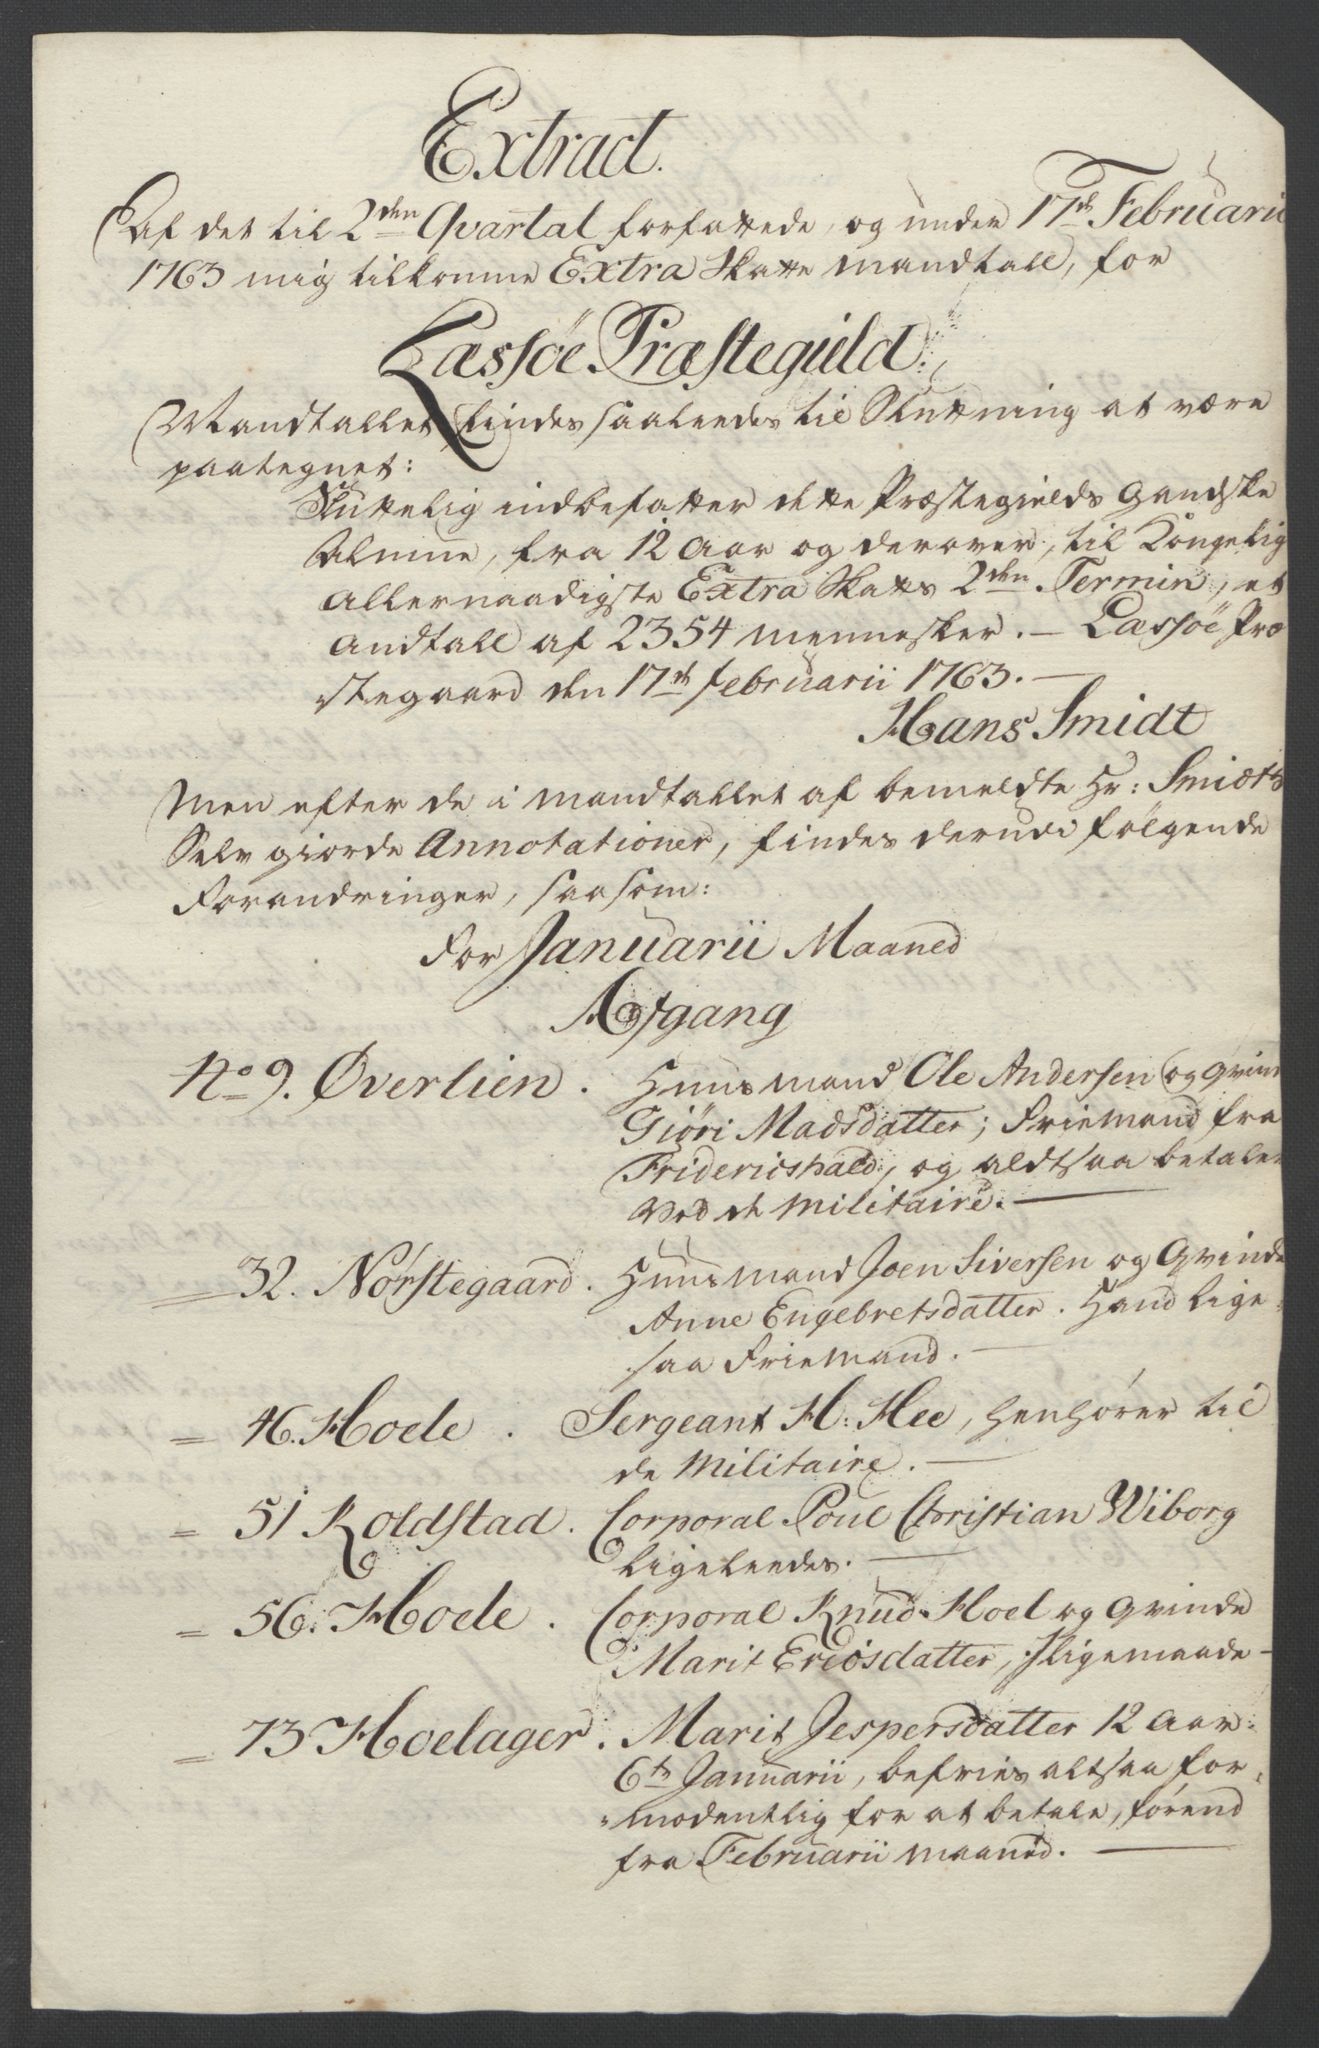 Extract.
Af det til 2den Qvartal forfattede, og under 17de Februarii
1763 mig tilkomne Extra Skatte Mandtall, for
Læssøe Præstegield.
Mandtallet findes saaledes til Slutning at være
paategnet:
Sluttelig indbefatter dette Præstegields Gandske
Almue, fra 12 Aar og derover, til Kongelig
Allernaadigste Extra Skatts 2den Termin, et
Andtall af 2354 mennesker. — Læssøe Præ
stegaard den 17de Februarii 1763. —
Hans Smidt
Men efter de i Mandtallet af bemeldte Hr: Smidts
Selv giorde Annotationer, findes derudi følgende
Forandringer, saasom:
For Januarii Maaned
Afgang
No 9. Øverlien. Huusmand Ole Andersen og Qvinde
Giöri Madsdatter; Friemand fra
Fridericshald, og altsaa betaler
Ved de Militaire. —
= 32. Nørstegaard. Huusmand Joen Siversen og Qvinde
Anne Engebretsdatter. Hand lige
saa Friemand. —
= 46. Hoele. Sergeant H: Hee, henhører til
de Militaire. —
= 51 Koldstad. Corporal Poul Christian Wiborg
ligeleedes. —
= 56. Hoele. Corporal Knud Hoel og Qvinde
Marit Ericsdatter, Iligemaade —
= 73 Hoelager. Marit Jespersdatter 12 Aar
6te Januarii, befries altsaa for-
modentlig for at betale, førend
fra Februarii Maaned. —